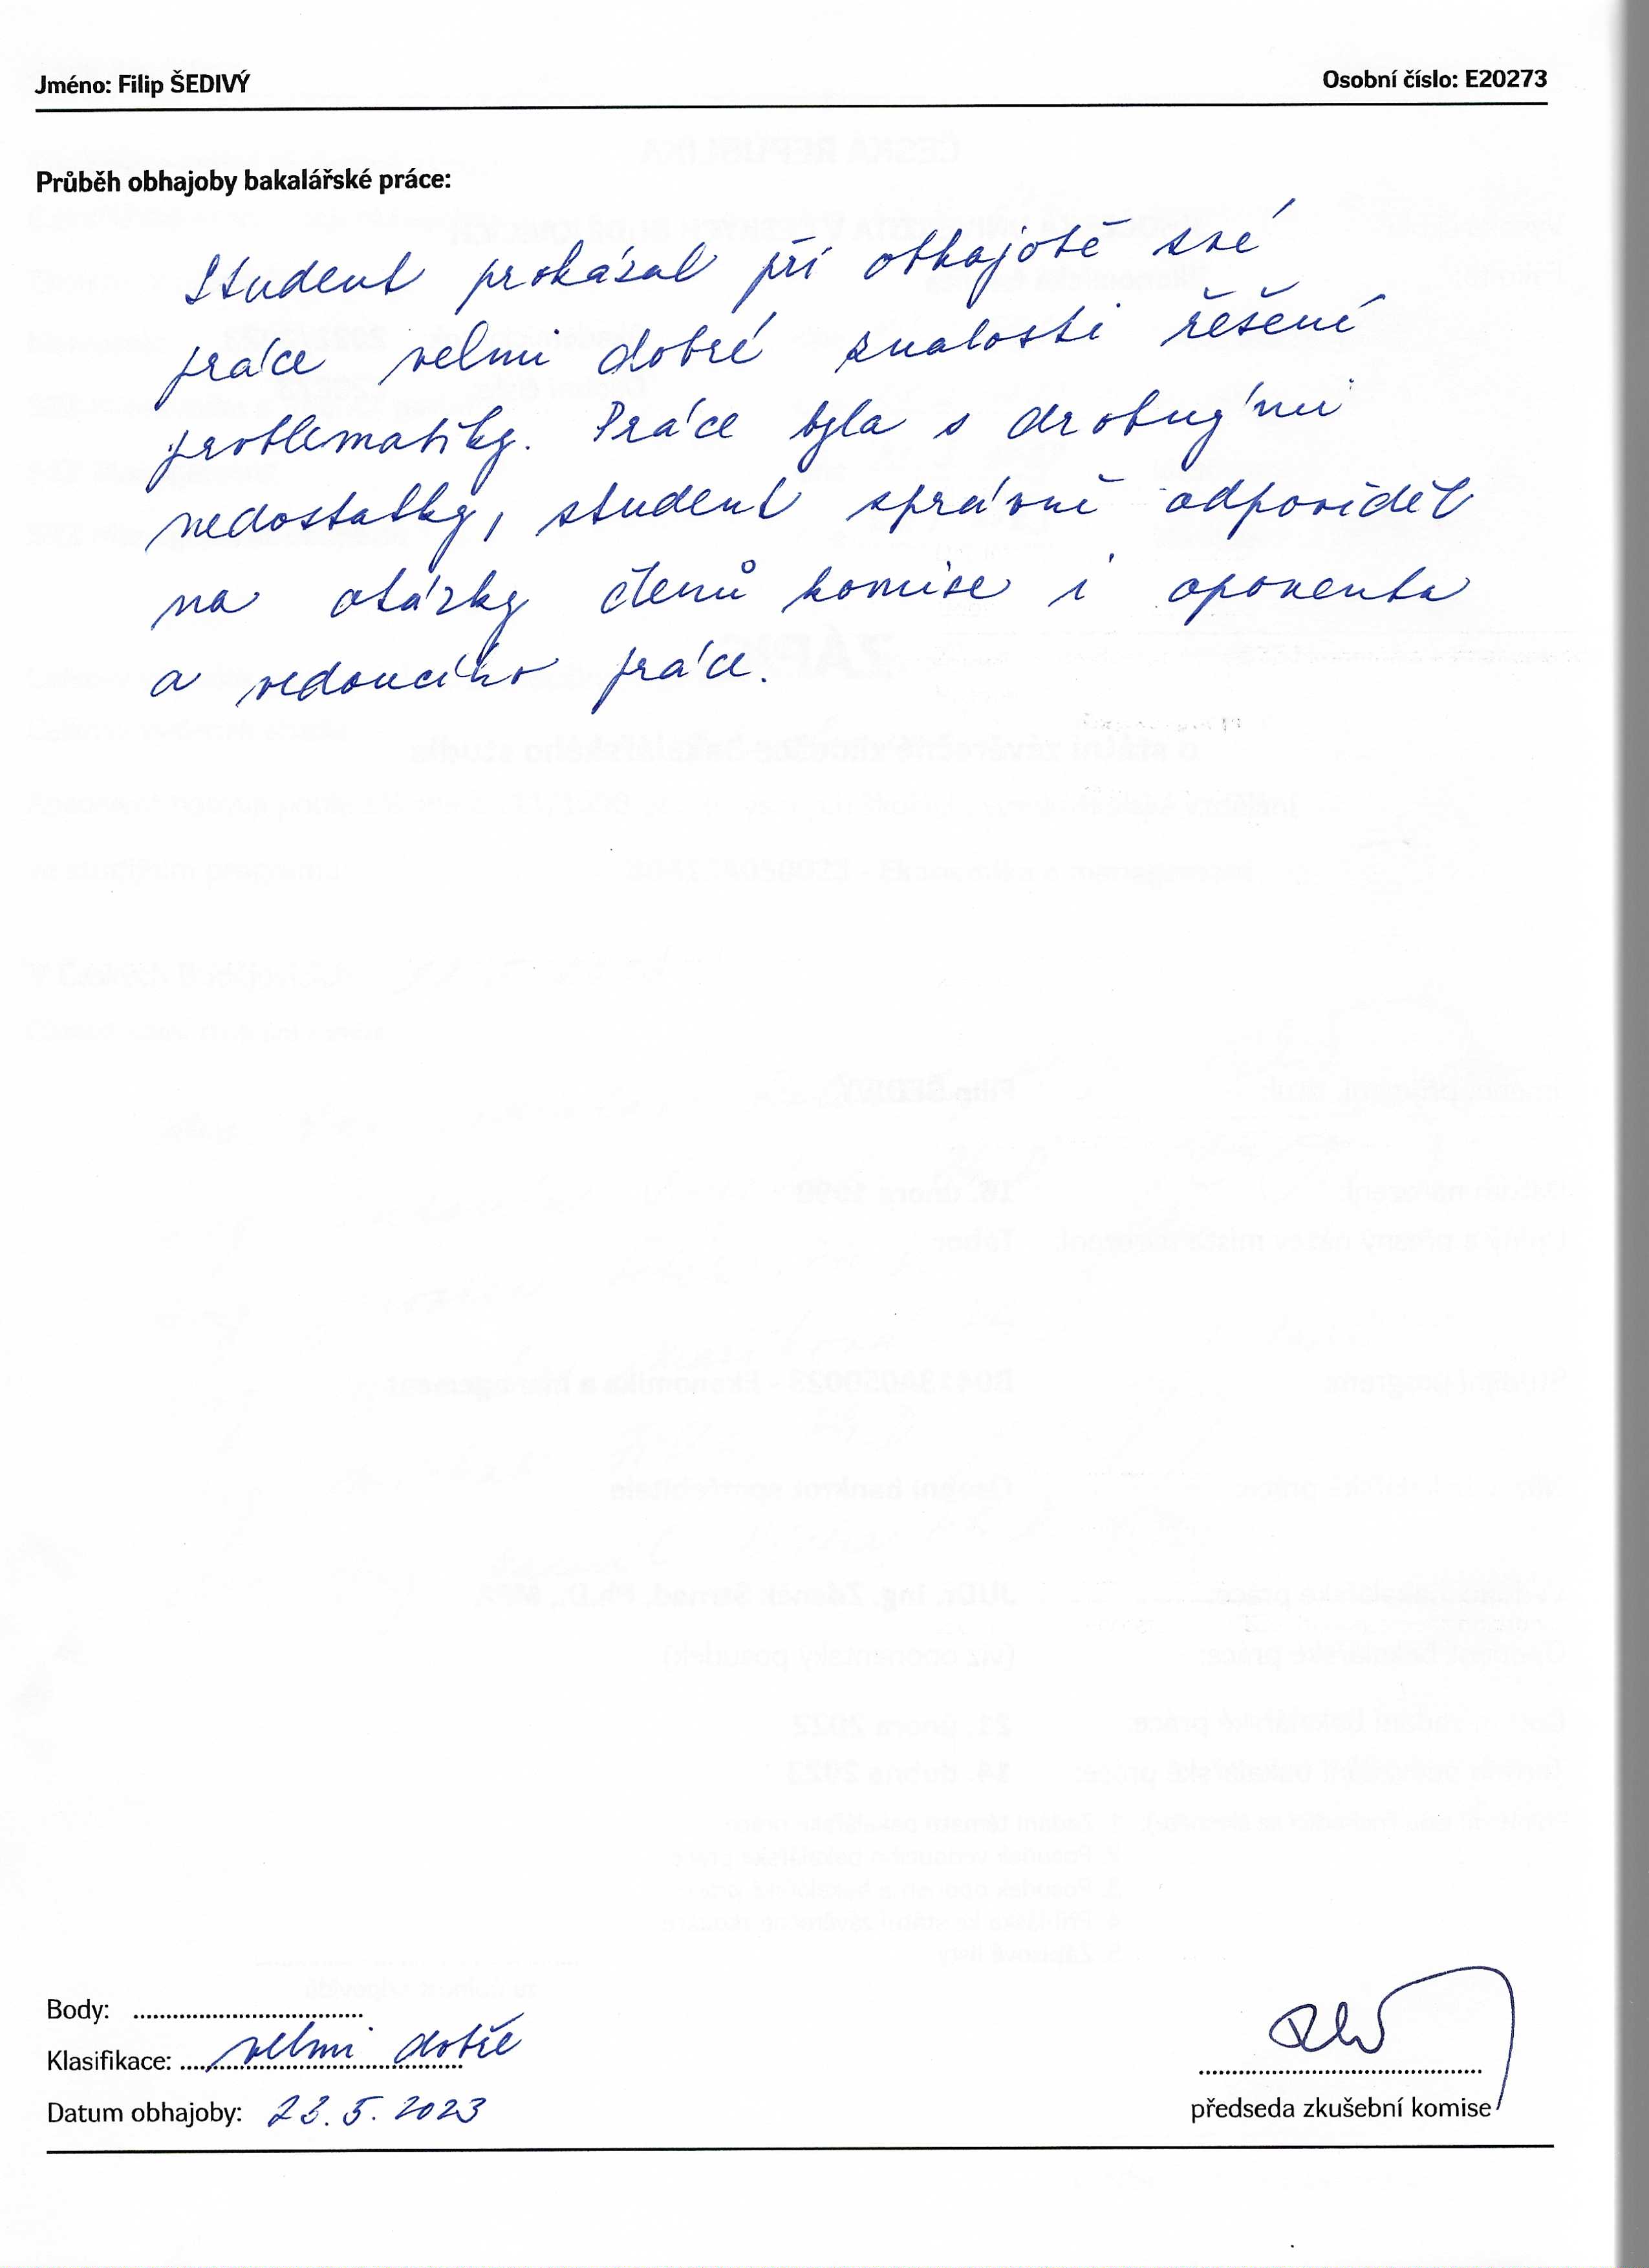 Jméno: Filip ŠEDIVÝ Osobní číslo: E20273
Průběh obhajoby bakalářské práce:
Student prokázal při obhajobě své
práce velmi dobré znalosti řešení
problematiky. Práce byla s drobnými
nedostatky, student správně odpovíděl
na otázky členů komise i oponenta
a vedoucího práce.
Body:
Klasifikace: velmi dobře
Datum obhajoby: 23.5.2023
předseda zkušební komise